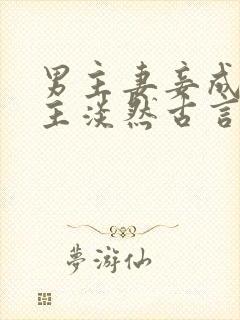 男主妻妾成
主淡然古言
夢游仙